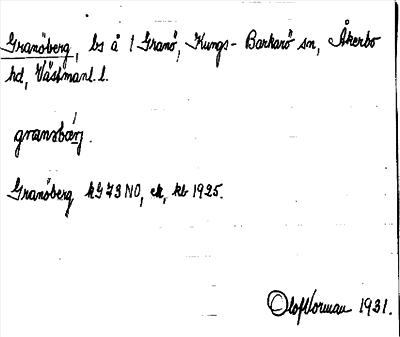 Granöberg, bs å 1 Granö, Kungs-Barkarö sn, Åkerbo
hd, Västmanl. l.
granöbærj.
Granöberg kG 73 NO, ek, kb 1925.
Olof Norman 1931.